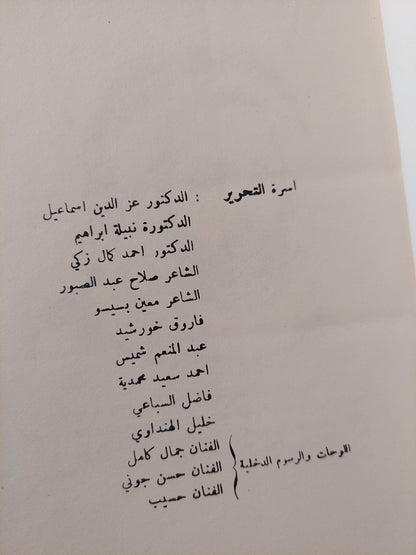 اسرة التحرير : الدكتور عز الدين اسماعيل
الدكتورة نبيلة ابراهيم
الدكتور احمد كمال زكي
الشاعر صلاح عبد الصبور
الشاعر معين بسيسو
فاروق خورشيد
عبد المنعم شميس
احمد سعيد محمدية
فاضل السباعي
خليل الهنداوي
الفنان جمال كامل
اللوحات والرسوم الدخلية { الفنان حسن جوني
الفنان حسيب